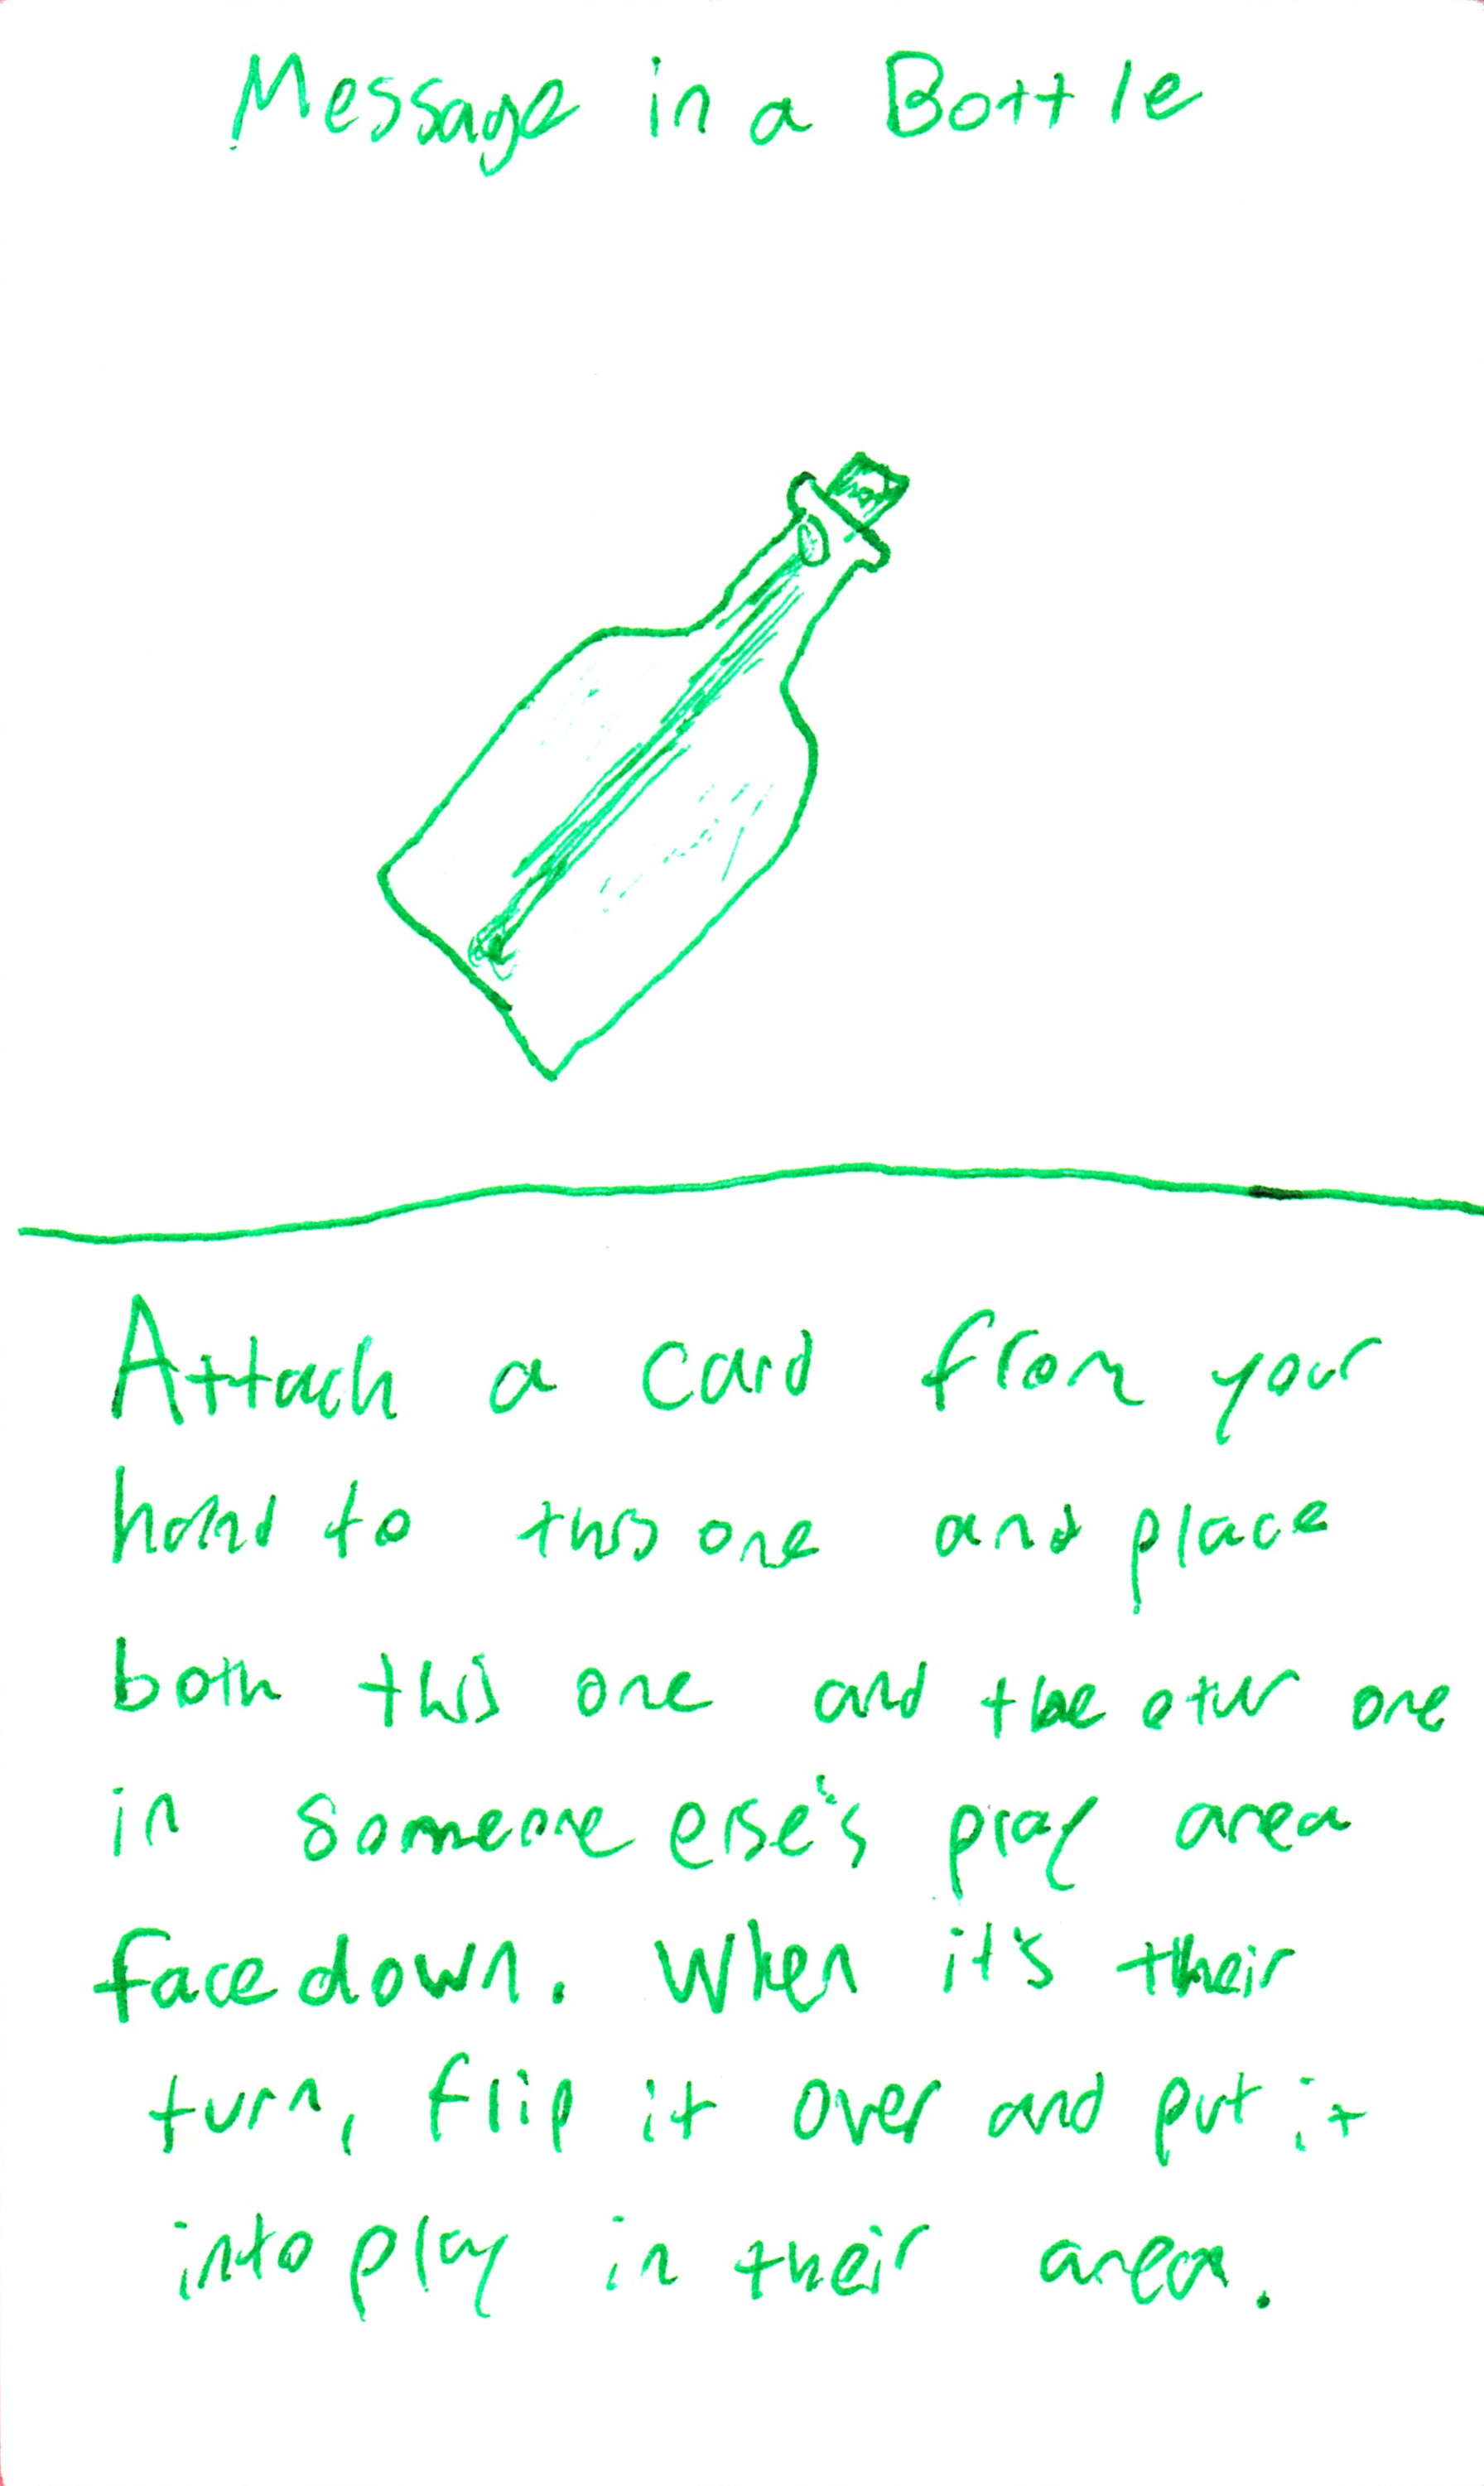 Message in a Bottle
Attach a card from your
hand to this one and place
both this one and the other one
in someone else's play area
facedown. When it's their
turn, flip it over and put it
into play in their area.